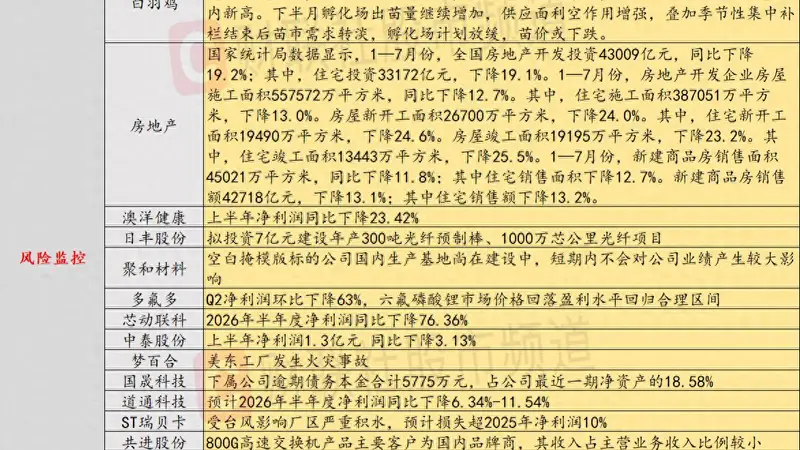 白羽鸡
内新高。下半月孵化场出苗量继续增加，供应面利空作用增强，叠加季节性集中补
栏结束后苗市需求转淡，孵化场计划放缓，苗价或下跌。
房地产
国家统计局数据显示，1—7月份，全国房地产开发投资43009亿元，同比下降
19.2%；其中，住宅投资33172亿元，下降19.1%。1—7月份，房地产开发企业房屋
施工面积557572万平方米，同比下降12.7%。其中，住宅施工面积387051万平方
米，下降13.0%。房屋新开工面积26700万平方米，下降24.0%。其中，住宅新开工
面积19490万平方米，下降24.6%。房屋竣工面积19195万平方米，下降23.2%。其
中，住宅竣工面积13443万平方米，下降25.5%。1—7月份，新建商品房销售面积
45021万平方米，同比下降11.8%；其中住宅销售面积下降12.7%。新建商品房销售
额42718亿元，下降13.1%；其中住宅销售额下降13.2%。
风险监控
澳洋健康 上半年净利润同比下降23.42%
日丰股份 拟投资7亿元建设年产300吨光纤预制棒、1000万芯公里光纤项目
聚和材料
空白掩模版标的公司国内生产基地尚在建设中，短期内不会对公司业绩产生较大影
响
多氟多 Q2净利润环比下降63%，六氟磷酸锂市场价格回落盈利水平回归合理区间
芯动联科 2026年半年度净利润同比下降76.36%
中泰股份 上半年净利润1.3亿元 同比下降3.13%
梦百合 美东工厂发生火灾事故
国晟科技 下属公司逾期债务本金合计5775万元，占公司最近一期净资产的18.58%
道通科技 预计2026年半年度净利润同比下降6.34%-11.54%
ST瑞贝卡 受台风影响厂区严重积水，预计损失超2025年净利润10%
共进股份 800G高速交换机产品主要客户为国内品牌商，其收入占主营业务收入比例较小